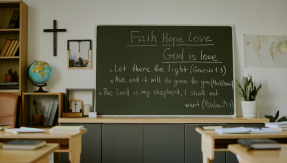 Faith Hope Love
God is love
• Let there be light (Genesis 1:3)
• Ask and it will be given to you (Matthew
• The Lord is my shepherd, I shall not
want (Psalm 23:1)